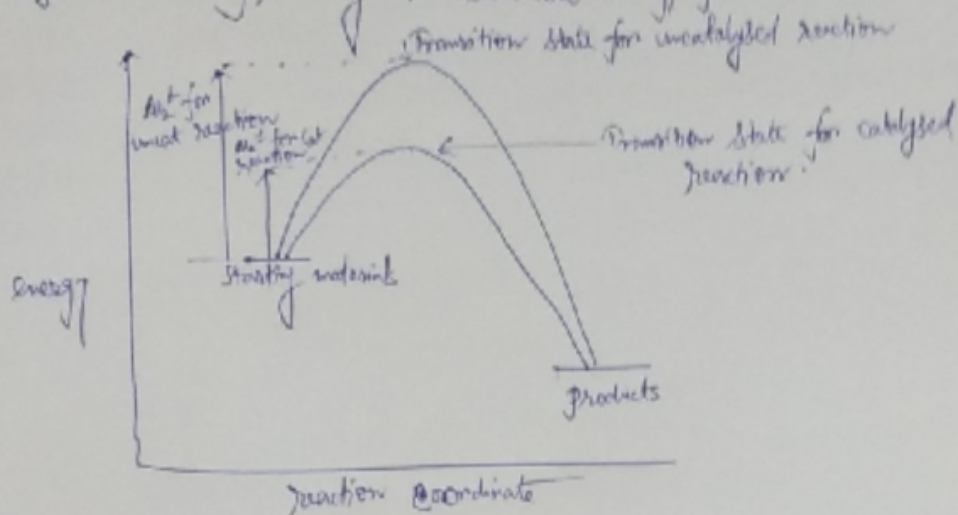 Transition state for uncatalysed reaction
for
uncat reaction
for cat
reaction
Transition state for catalysed
reaction.
starting materials
energy
products
reaction coordinate